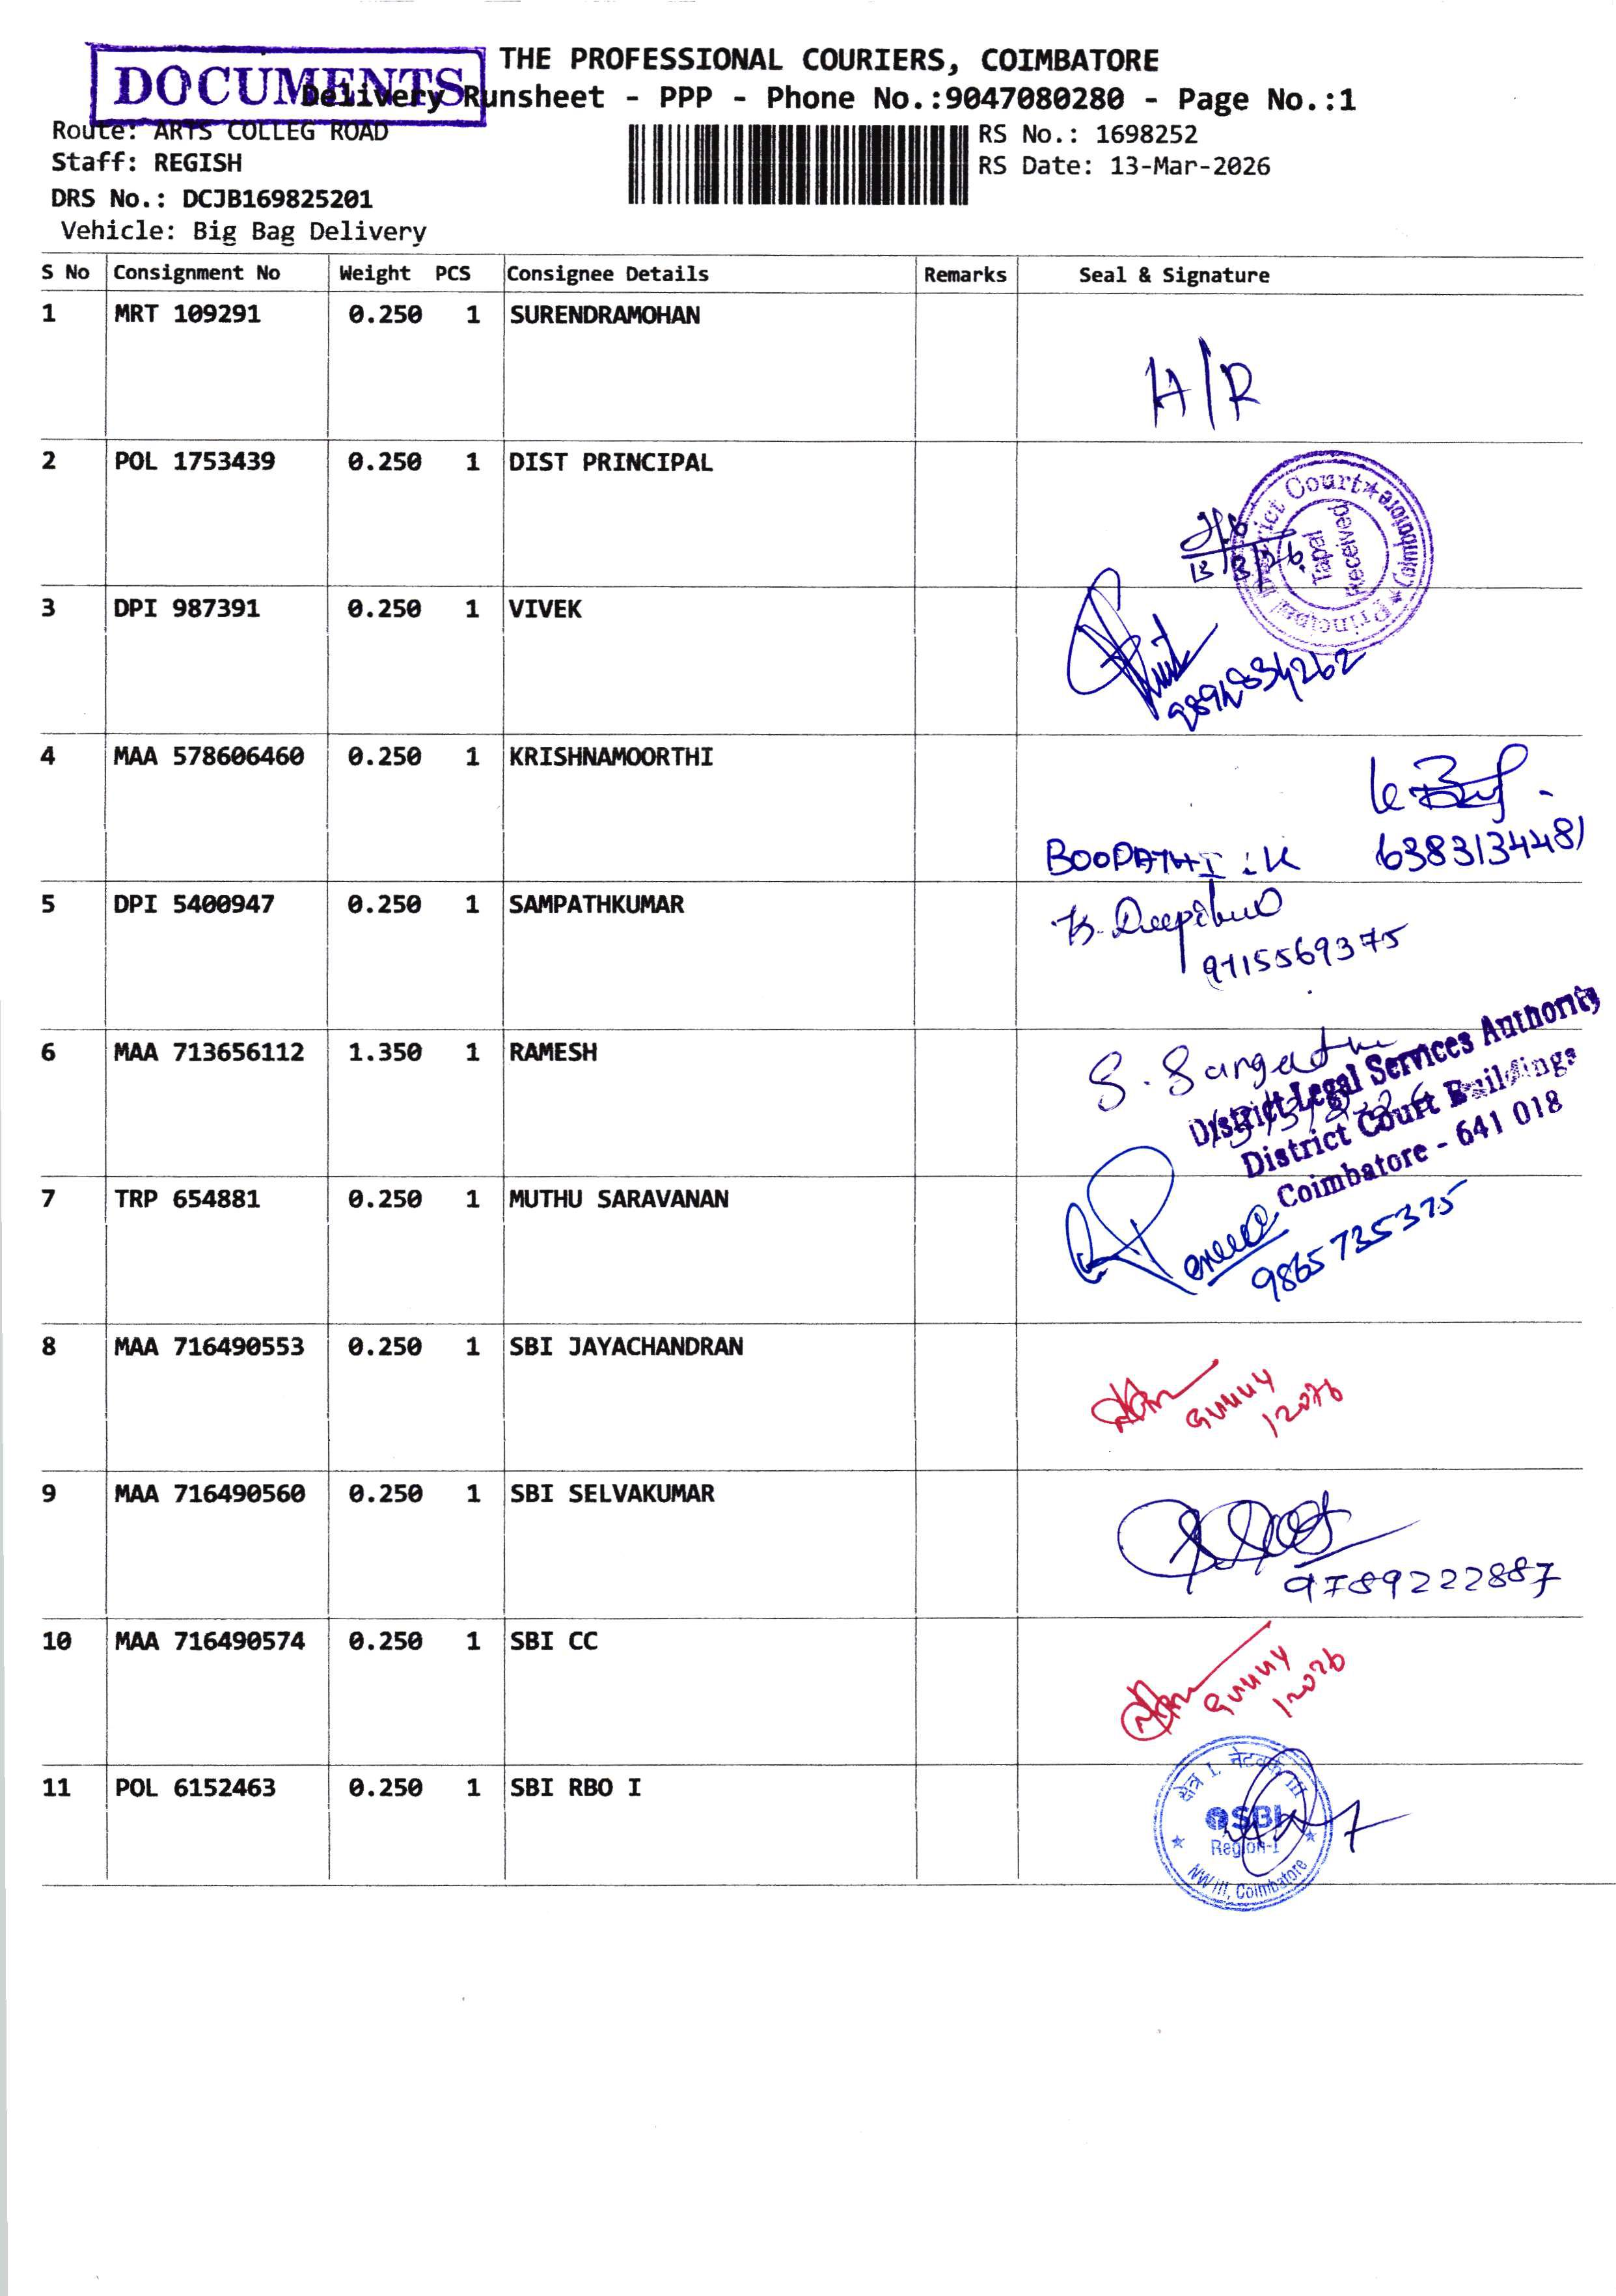 THE PROFESSIONAL COURIERS, COIMBATORE
DOCUMENTS
Delivery Runsheet - PPP - Phone No.:9047080280 - Page No.:1
Route: ARTS COLLEG ROAD
RS No.: 1698252
Staff: REGISH
RS Date: 13-Mar-2026
DRS No.: DCJB169825201
Vehicle: Big Bag Delivery
S No Consignment No Weight PCS Consignee Details Remarks Seal & Signature
1 MRT 109291 0.250 1 SURENDRAMOHAN
H/R
2 POL 1753439 0.250 1 DIST PRINCIPAL
Principal District Court Coimbatore
Tapal
Received
13/3/26
3 DPI 987391 0.250 1 VIVEK
9894834262
4 MAA 578606460 0.250 1 KRISHNAMOORTHI
BOOPATHI .K 6383134481
5 DPI 5400947 0.250 1 SAMPATHKUMAR
9715569375
6 MAA 713656112 1.350 1 RAMESH
District Legal Services Authority
District Court Buildings
Coimbatore - 641 018
7 TRP 654881 0.250 1 MUTHU SARAVANAN
9865735375
8 MAA 716490553 0.250 1 SBI JAYACHANDRAN
9 MAA 716490560 0.250 1 SBI SELVAKUMAR
9789222887
10 MAA 716490574 0.250 1 SBI CC
11 POL 6152463 0.250 1 SBI RBO I
क्षेत्र 1, नेटवर्क III
SBI
Region-I
NW III, Coimbatore